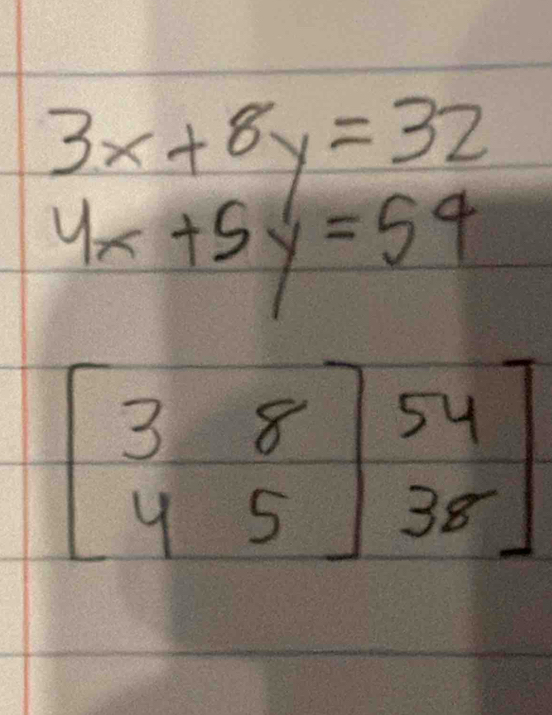 3x + 8y = 32
4x + 5y = 59
[ 3 8 ] 54 ]
[ 4 5 ] 38 ]